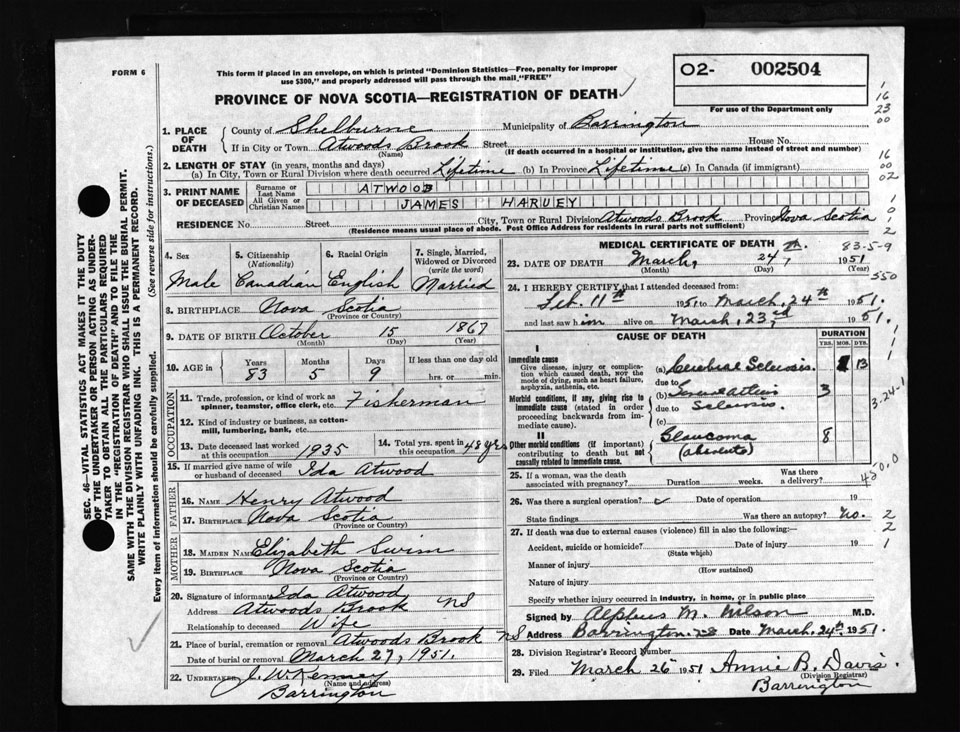 FORM 6
This form if placed in an envelope, on which is printed "Dominion Statistics—Free, penalty for improper
use $300," and properly addressed will pass through the mail "FREE"
O2- 002504
For use of the Department only
PROVINCE OF NOVA SCOTIA—REGISTRATION OF DEATH
1
16
23
00
16
00
02
1
0
1
2
SEC. 46—VITAL STATISTICS ACT MAKES IT THE DUTY
OF THE UNDERTAKER OR PERSON ACTING AS UNDER-
TAKER TO OBTAIN ALL THE PARTICULARS REQUIRED
IN THE "REGISTRATION OF DEATH" AND TO FILE THE
SAME WITH THE DIVISION REGISTRAR WHO SHALL ISSUE THE BURIAL PERMIT.
WRITE PLAINLY WITH UNFADING INK. THIS IS A PERMANENT RECORD.
Every item of information should be carefully supplied. (See reverse side for instructions.)
1. PLACE OF DEATH
County of Shelburne Municipality of Barrington
If in City or Town Atwoods Brook Street House No.
(Name) (If death occurred in a hospital or institution, give the name instead of street and number)
2. LENGTH OF STAY (in years, months and days)
(a) In City, Town or Rural Division where death occurred Lifetime (b) In Province Lifetime (c) In Canada (if immigrant)
3. PRINT NAME OF DECEASED
Surname or Last Name ATWOOD
All Given or Christian Names JAMES HARVEY
RESIDENCE No. Street City, Town or Rural Division Atwoods Brook Province Nova Scotia
(Residence means usual place of abode. Post Office Address for residents in rural parts not sufficient)
4. Sex 5. Citizenship (Nationality) 6. Racial Origin 7. Single, Married, Widowed or Divorced (write the word)
Male Canadian English Married
8. BIRTHPLACE Nova Scotia
(Province or Country)
9. DATE OF BIRTH October 15 1867
(Month) (Day) (Year)
10. AGE in Years Months Days If less than one day old
83 5 9 hrs. or min.
OCCUPATION
11. Trade, profession, or kind of work as spinner, teamster, office clerk, etc. Fisherman
12. Kind of industry or business, as cotton-mill, lumbering, bank, etc.
13. Date deceased last worked at this occupation 1935 14. Total yrs. spent in this occupation 48 yrs
15. If married give name of wife or husband of deceased Ida Atwood
FATHER
16. NAME Henry Atwood
17. BIRTHPLACE Nova Scotia
(Province or Country)
MOTHER
18. MAIDEN NAME Elizabeth Swim
19. BIRTHPLACE Nova Scotia
(Province or Country)
20. Signature of informant Ida Atwood
Address Atwoods Brook NS
Relationship to deceased Wife
21. Place of burial, cremation or removal Atwoods Brook NS
Date of burial or removal March 27, 1951.
22. UNDERTAKER J. W. Kenney
(Name and address)
Barrington
MEDICAL CERTIFICATE OF DEATH 83-5-9
23. DATE OF DEATH March, 24th, 1951
(Month) (Day) (Year)
24. I HEREBY CERTIFY that I attended deceased from: 550
Feb. 11th 1951 to March, 24th 1951.
and last saw him alive on March, 23rd 1951.
CAUSE OF DEATH DURATION
YRS. MOS. DYS.
I
Immediate cause
Give disease, injury or complication which caused death, not the mode of dying, such as heart failure, asphyxia, asthenia, etc.
(a) Cerebral Sclerosis. 13
due to
Morbid conditions, if any, giving rise to immediate cause (stated in order proceeding backwards from immediate cause).
(b) 3
due to Sclerosis.
(c)
3-24-1
II
Other morbid conditions (if important) contributing to death but not causally related to immediate cause.
Glaucoma 8
(absolute)
450.0
25. If a woman, was the death associated with pregnancy? Duration weeks. Was there a delivery?
26. Was there a surgical operation? Date of operation 19
State findings Was there an autopsy? No. 2
27. If death was due to external causes (violence) fill in also the following:— 2
Accident, suicide or homicide? Date of injury 19 1
(State which)
Manner of injury
(How sustained)
Nature of injury
Specify whether injury occurred in industry, in home, or in public place
Signed by Alpheus M. Wilson M.D.
Address Barrington NS Date March, 24th 1951.
28. Division Registrar's Record Number
29. Filed March 26 1951 Annie B. Davis.
(Division Registrar)
Barrington